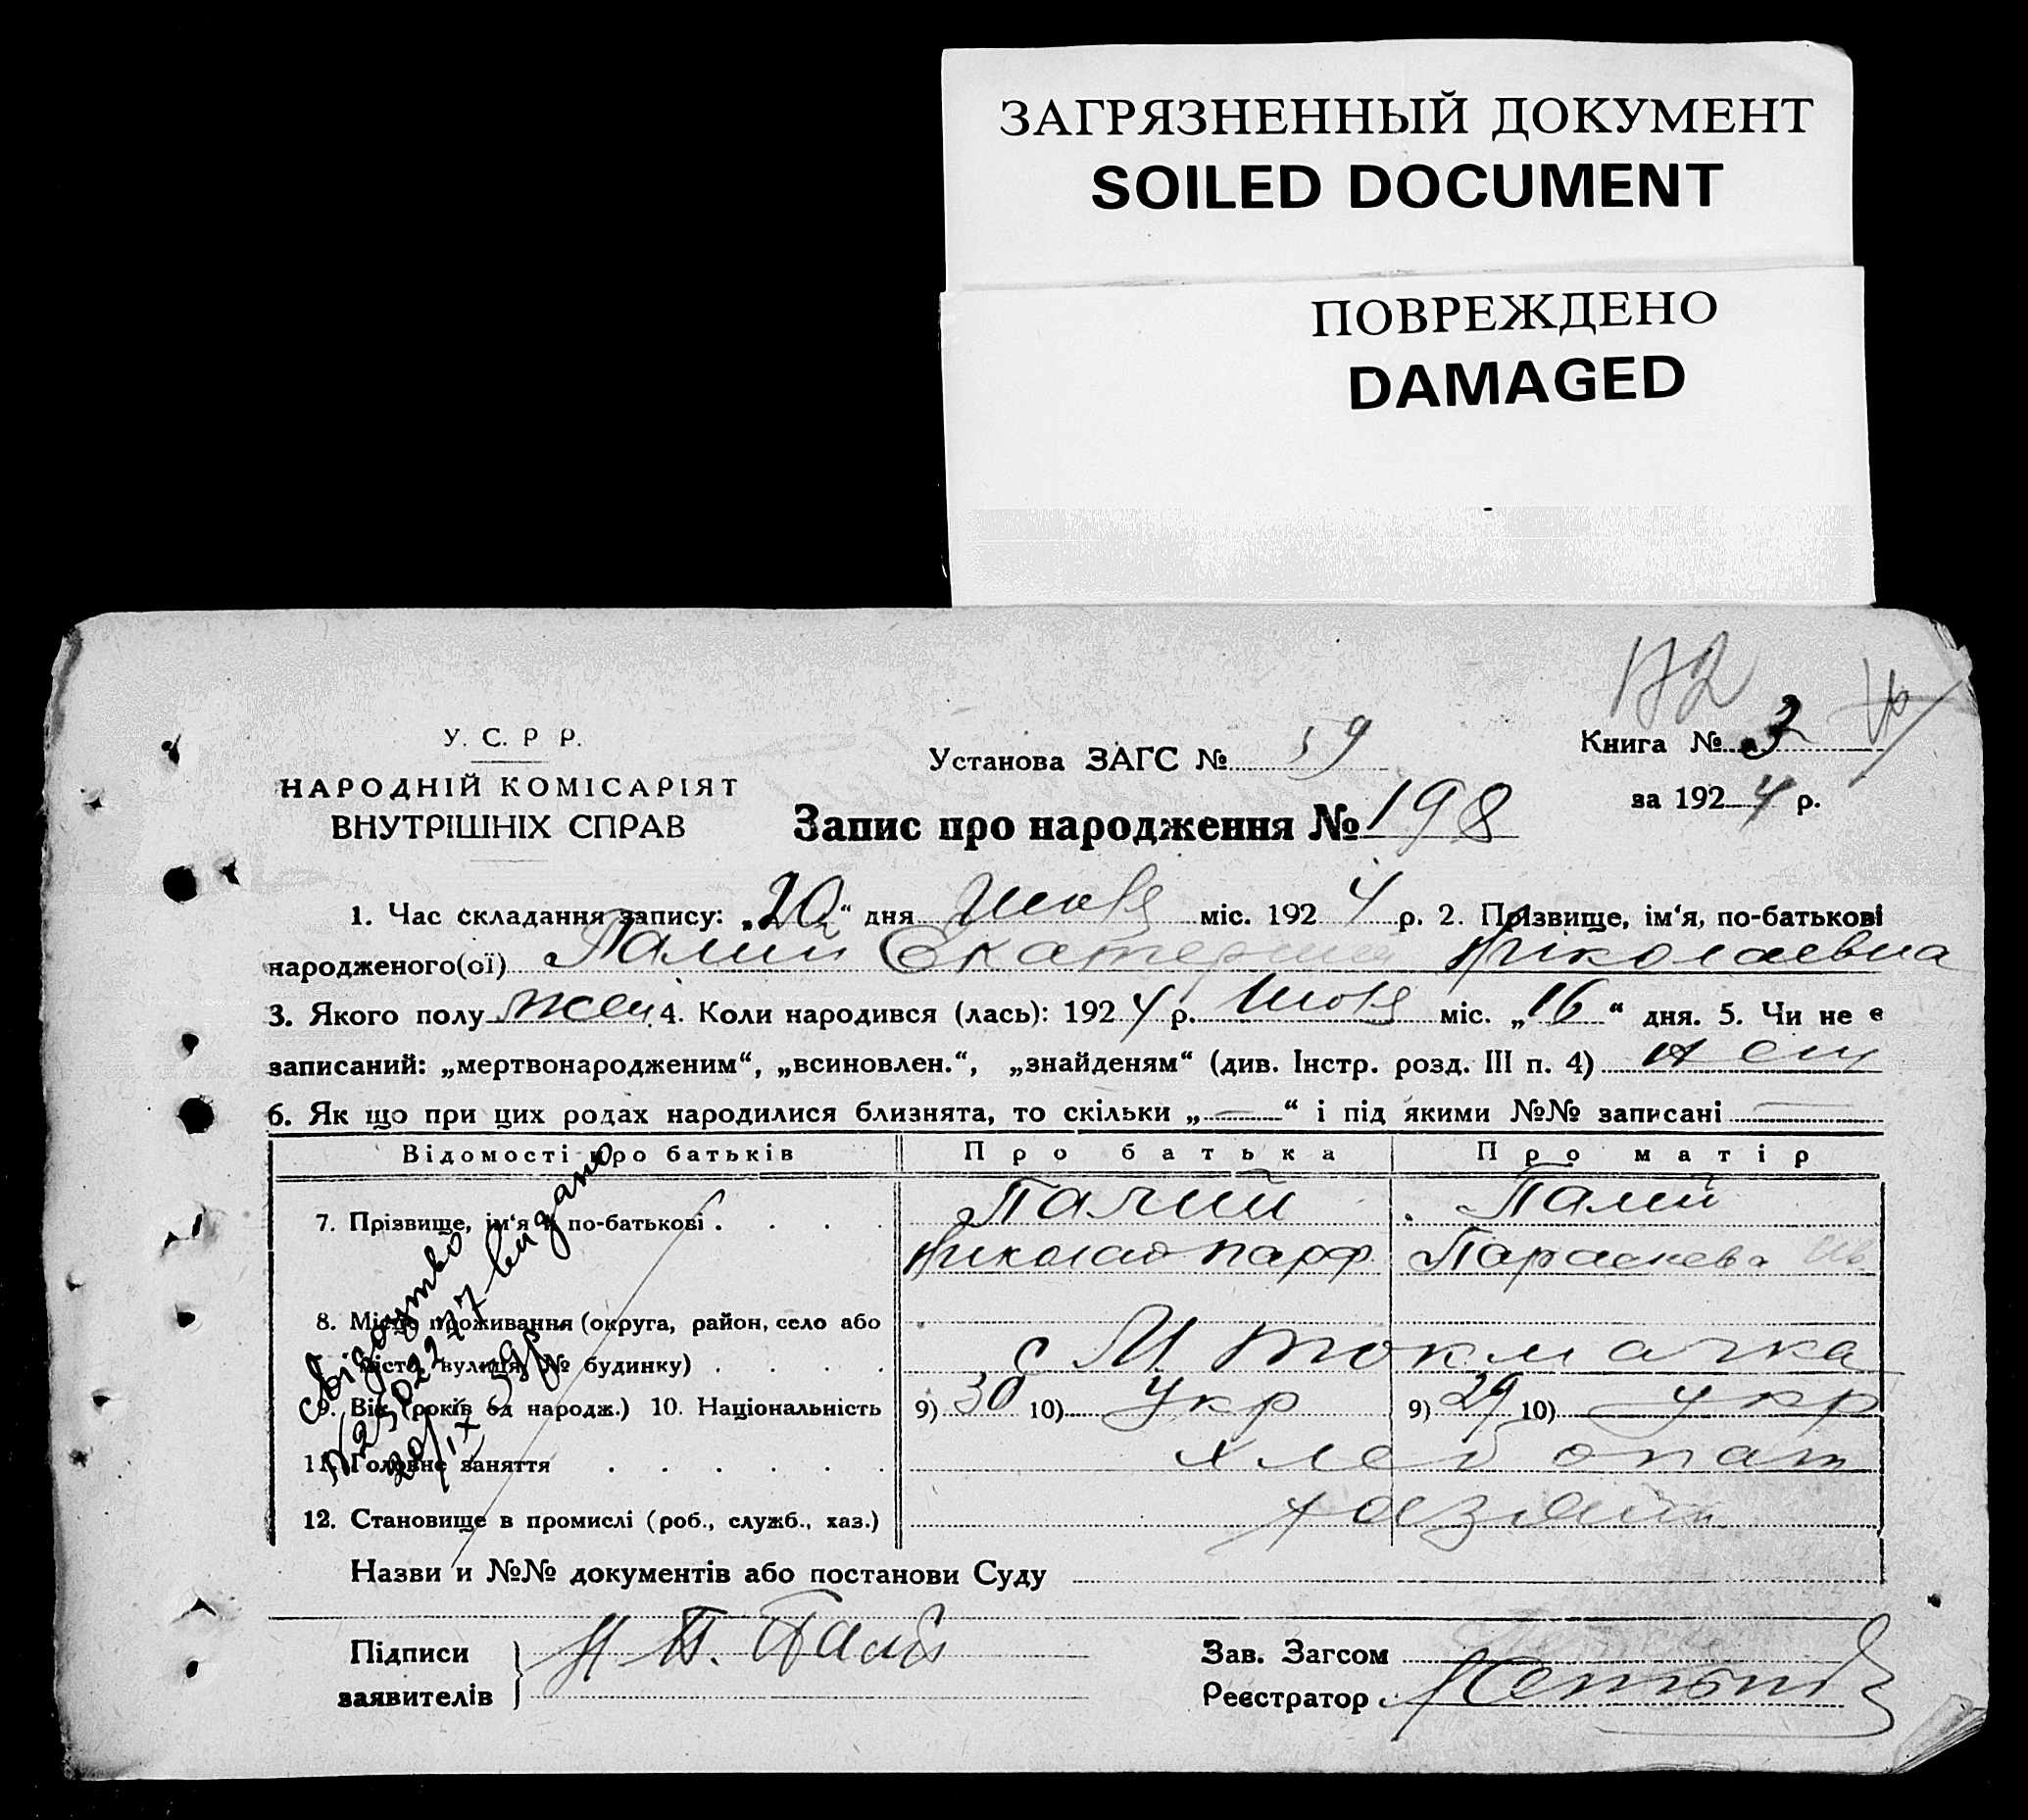 ЗАГРЯЗНЕННЫЙ ДОКУМЕНТ
SOILED DOCUMENT
ПОВРЕЖДЕНО
DAMAGED
172
У. С. Р Р.
НАРОДНІЙ КОМІСАРІЯТ
ВНУТРІШНІХ СПРАВ
Установа ЗАГС № 59
Книга № 3
за 1924 р.
Запис про народження № 198
1. Час складання запису: „20“ дня Июня міс. 1924 р. 2. Прізвище, ім‘я, по-батькові
народженого(ої) Палий Екатерина Николаевна
3. Якого полу жен 4. Коли народився (лась): 1924 р. Июня міс. „16“ дня. 5. Чи не є
записаний: „мертвонародженим“, „всиновлен.“, „знайденям“ (див. Інстр. розд. III п. 4)
6. Як що при цих родах народилися близнята, то скільки „—“ і під якими №№ записані —
Відомості про батьків Про батька Про матір
7. Прізвище, ім‘я и по-батькові . . . . Палий Палий
Николай Парф. Параскева Ив
8. Місце проживання (округа, район, село або
місто, вулиця, № будинку) . . . . с М Токмачка
9. Вік (років од народж.) 10. Національність 9) 30 10) Укр 9) 29 10) Укр
11. Головне заняття . . . . . . хлебопаш
12. Становище в промислі (роб., служб., хаз.) хазяин
свідоцтво
видано
20/IX 39р.
Назви и №№ документів або постанови Суду
Підписи
заявителів
Н П. Палій
Зав. Загсом
Реєстратор